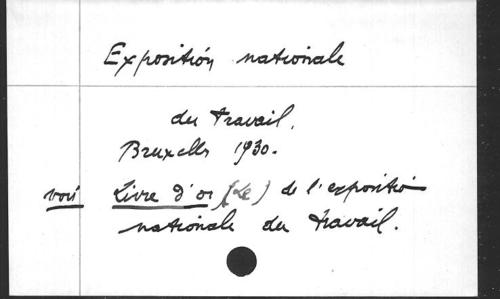 Exposition nationale
du travail.
Bruxelles 1930.
voir Livre d'or (Le) de l'exposition
nationale du travail.